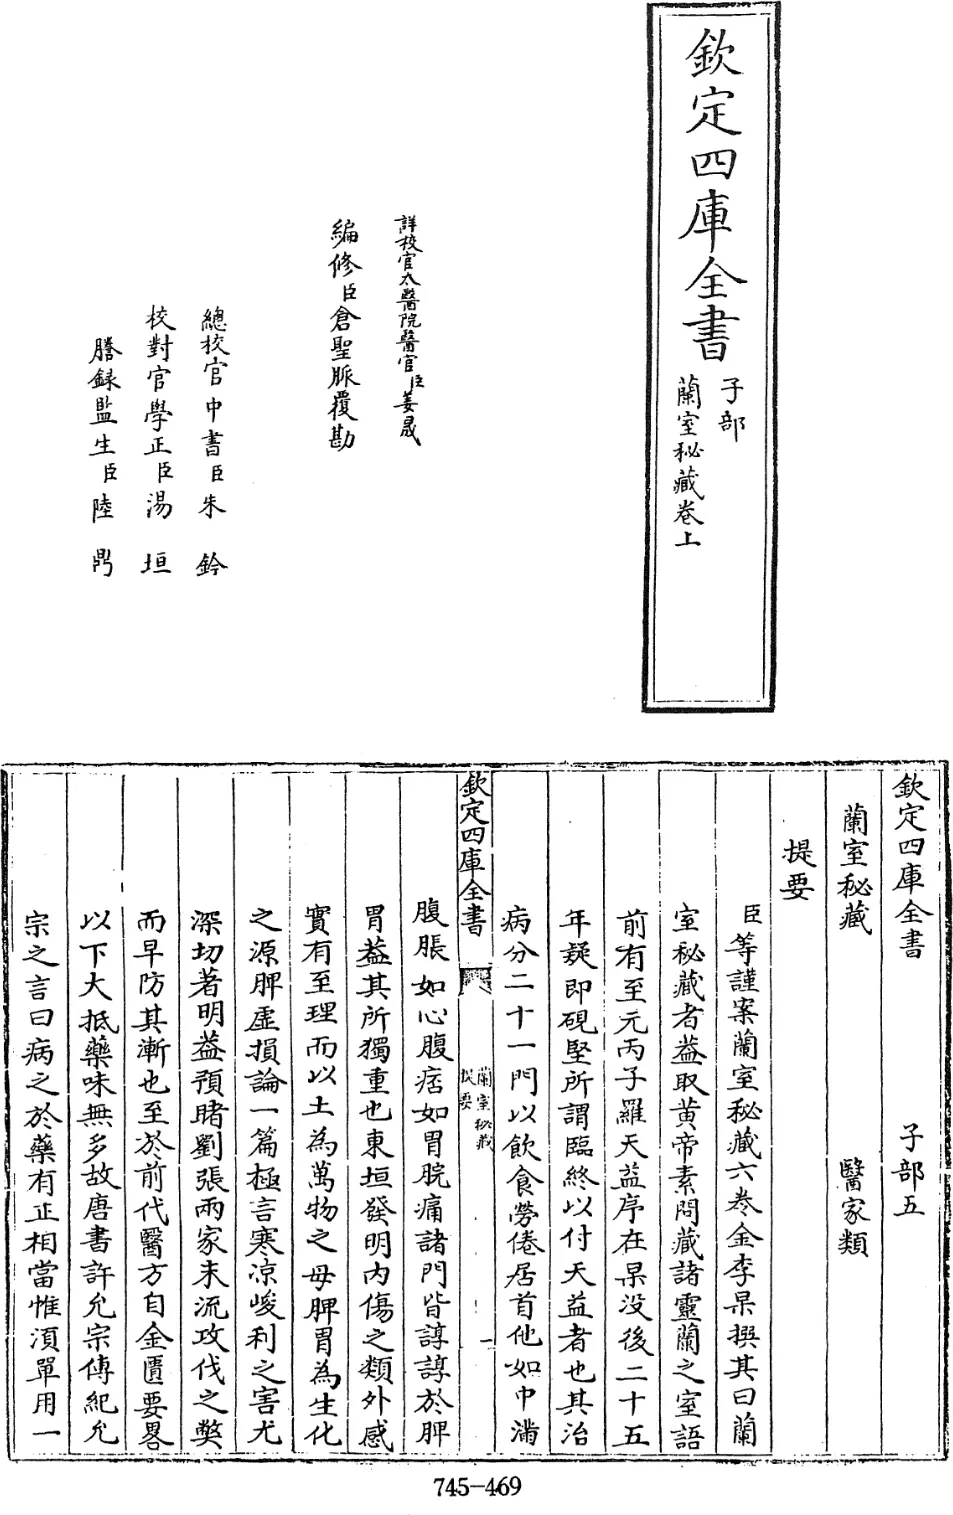 欽定四庫全書
子部
蘭室秘藏卷上
詳校官太醫院醫官臣姜晟
編修臣倉聖脈覆勘
總校官中書臣朱鈐
校對官學正臣湯垣
謄録監生臣陸鼎
欽定四庫全書 子部五
蘭室秘藏 醫家類
提要
臣等謹案蘭室秘藏六巻金李杲撰其曰蘭
室秘藏者葢取黄帝素問藏諸靈蘭之室語
前有至元丙子羅天益序在杲没後二十五
年疑即硯堅所謂臨終以付天益者也其治
病分二十一門以飲食勞倦居首他如中滿
欽定四庫全書
蘭室秘藏
提要
一
腹脹如心腹痞如胃脘痛諸門皆諄諄於脾
胃葢其所獨重也東垣發明内傷之類外感
實有至理而以土為萬物之母脾胃為生化
之源脾虚損論一篇極言寒凉峻利之害尤
深切著明葢預睹劉張兩家末流攻伐之獘
而早防其漸也至於前代醫方自金匱要畧
以下大抵藥味無多故唐書許允宗傳紀允
宗之言曰病之於藥有正相當惟湏單用一
745-469